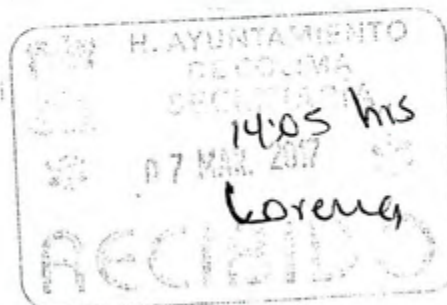 H. AYUNTAMIENTO
DE COLIMA
SECRETARIA
14:05 hrs
07 MAR. 2017
Lorena
RECIBIDO